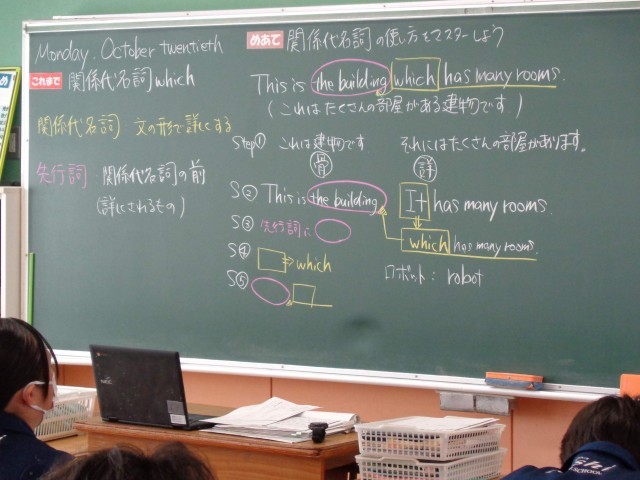 Monday. October twentieth
めあて 関係代名詞の使い方をマスターしよう
これまで 関係代名詞 which
関係代名詞 文の形で詳しくする
先行詞 関係代名詞の前
(詳しくされるもの)
This is the building which has many rooms.
(これはたくさんの部屋がある建物です)
Step① これは建物です それにはたくさんの部屋があります。
骨 詳
S② This is the building It has many rooms.
S③ 先行詞に which has many rooms.
S④ ⇒ which
S⑤
ロボット: robot
め
NEC
SCHOOL